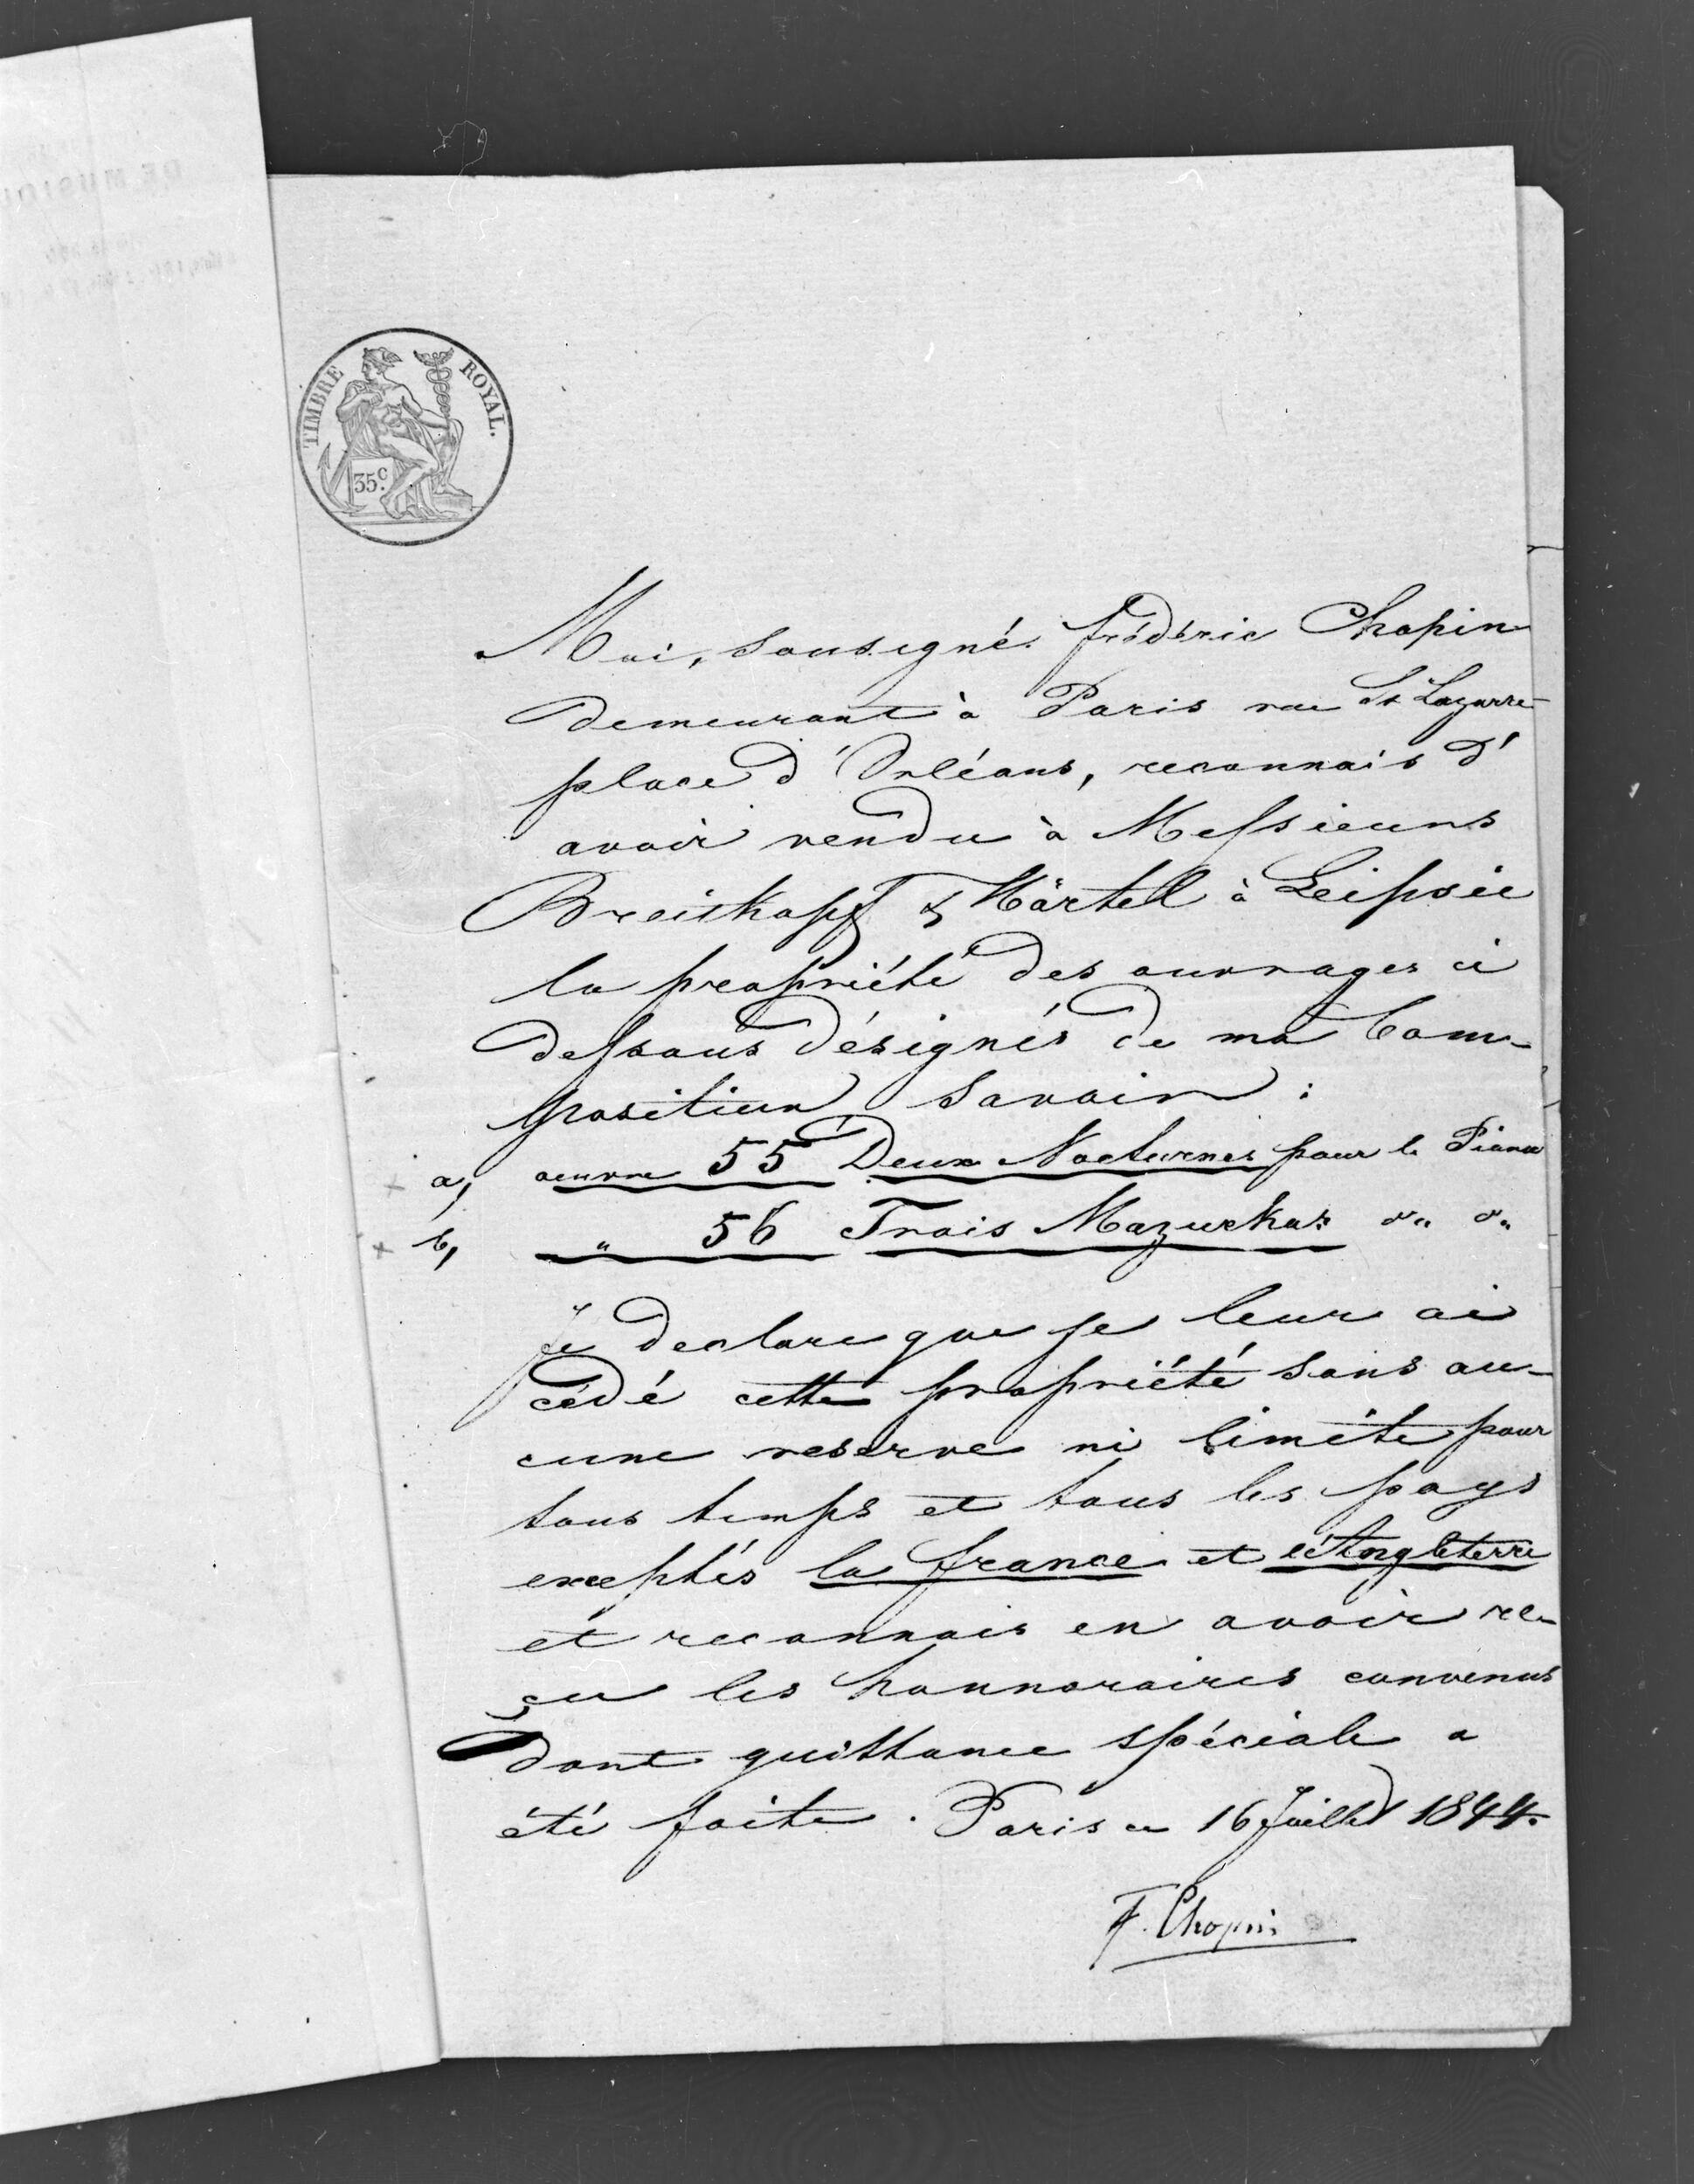 TIMBRE ROYAL.
35c.
Moi, sousigné Frédéric Chopin
demeurant à Paris rue St Lazarre
place d'Orléans, reconnais d'
avoir vendu à Messieurs
Breitkopf & Härtel à Leipsic
la propriété des ouvrages ci
dessous désignés de ma Com-
position savoir:
a, oeuvre 55 Deux Nocturnes pour le Piano
b, " 56 Trois Mazurkas d" d"
Je declare que je leur ai
cédé cette propriété sans au-
cune reserve ni limite pour
tous temps et tous les pays
exceptés la france et l'Angleterre
et reconnais en avoir re-
çu les honnoraires convenus
dont quittance spéciale a
été faite. Paris ce 16 Juillet 1844.
F. Chopin